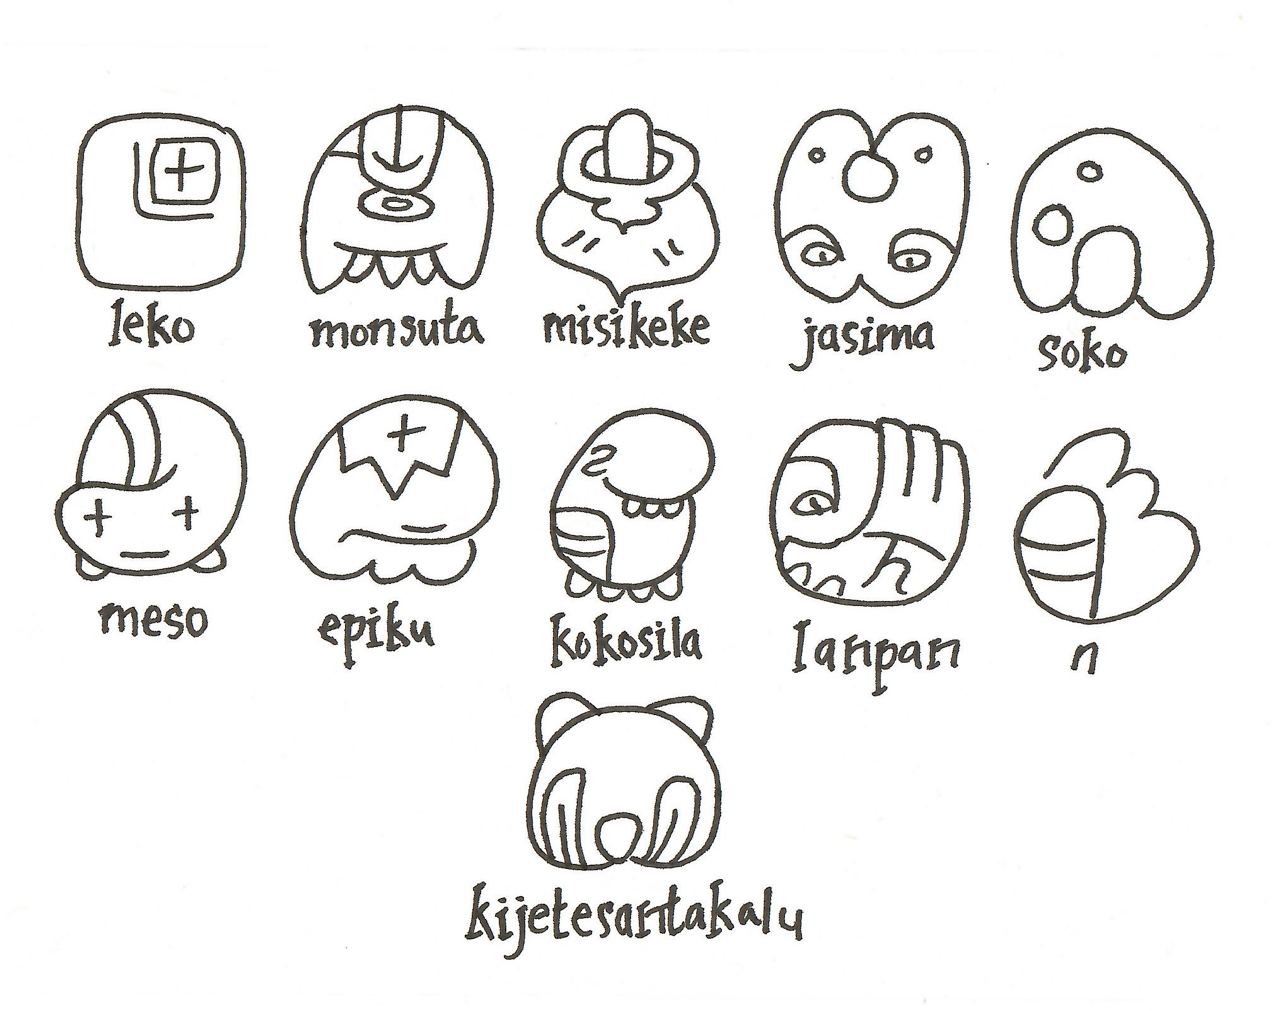 leko monsuta misikeke jasima soko
meso epiku kokosila lanpan n
kijetesantakalu